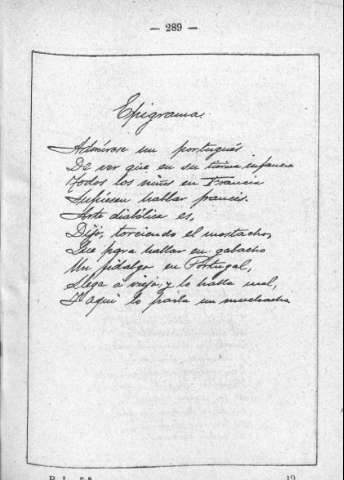 — 289 —
Epigrama.
Admiróse un portugués
De ver que en su tierna infancia
Todos los niños en Francia
Supiesen hablar francés.
Arte diabólica es,
Dijo, torciendo el mostacho,
Que para hablar en gabacho
Un fidalgo en Portugal,
Llega á viejo, y lo habla mal,
Y aquí lo parla un muchacho
19